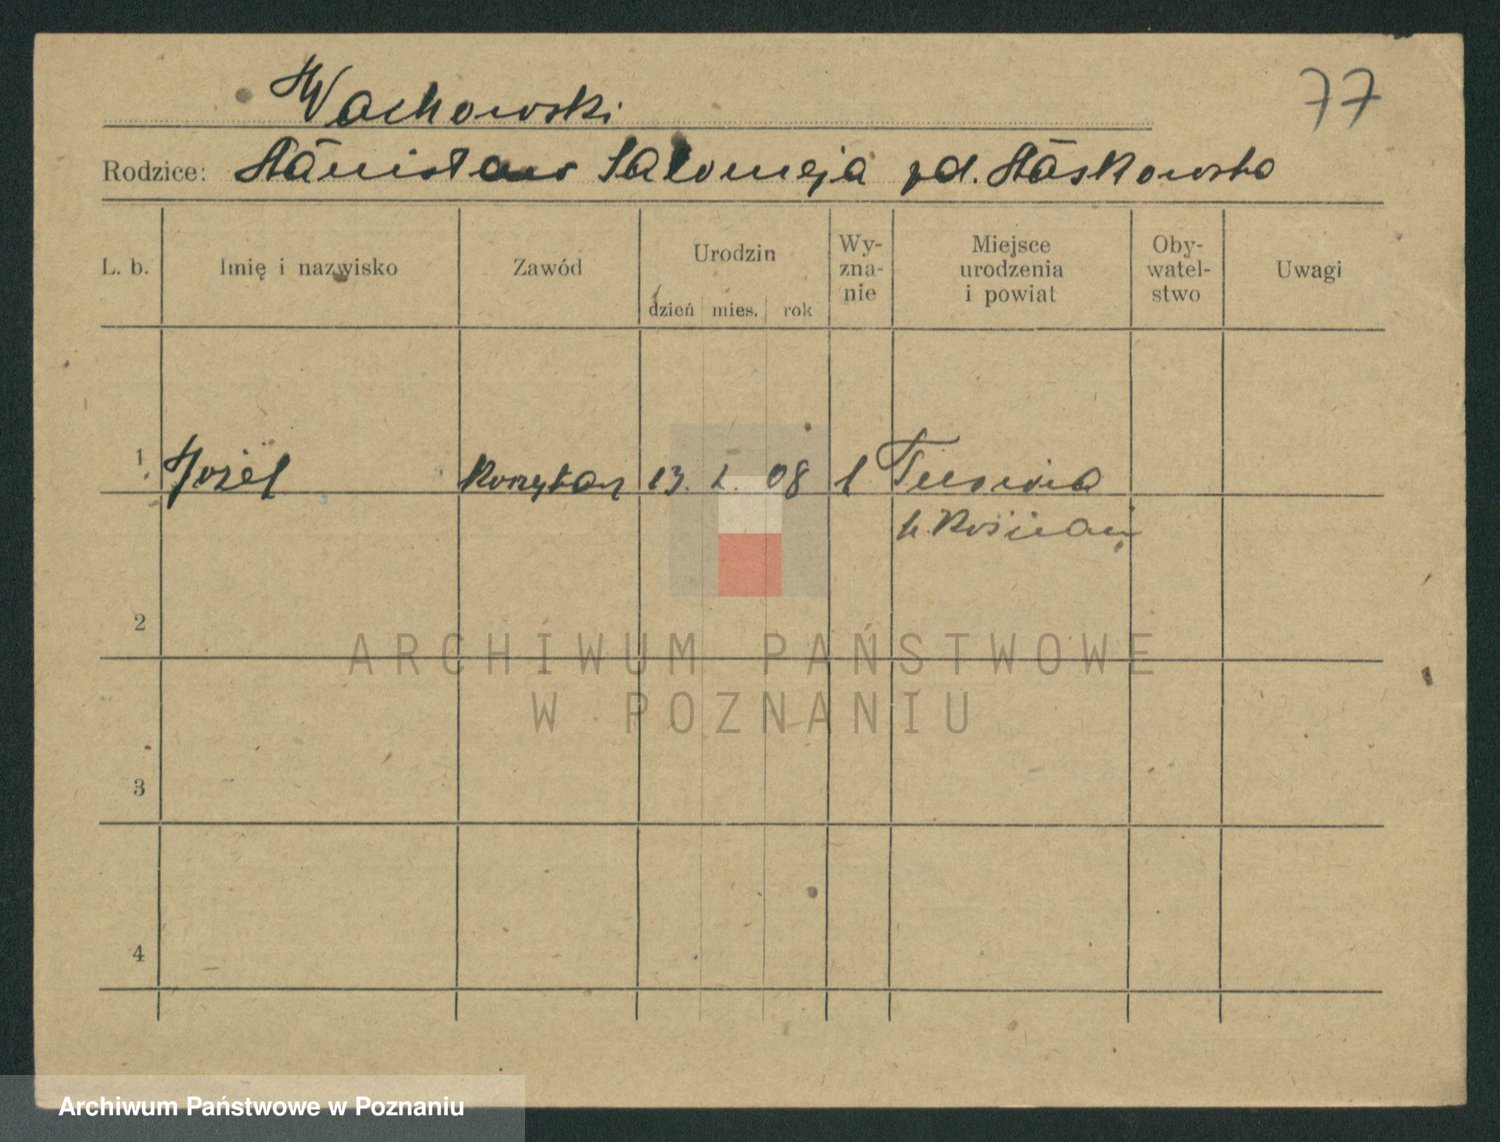 77
Wachowski
Rodzice: Stanisław Salomeja zd. Staśkowska
L. b. Imię i nazwisko Zawód Urodzin Wy- Miejsce Oby- Uwagi
zna- urodzenia watel-
dzień mies. rok nie i powiat stwo
1 Józef 13. 1. 08
p. Kościan
2
ARCHIWUM PAŃSTWOWE
W POZNANIU
3
4
Archiwum Państwowe w Poznaniu